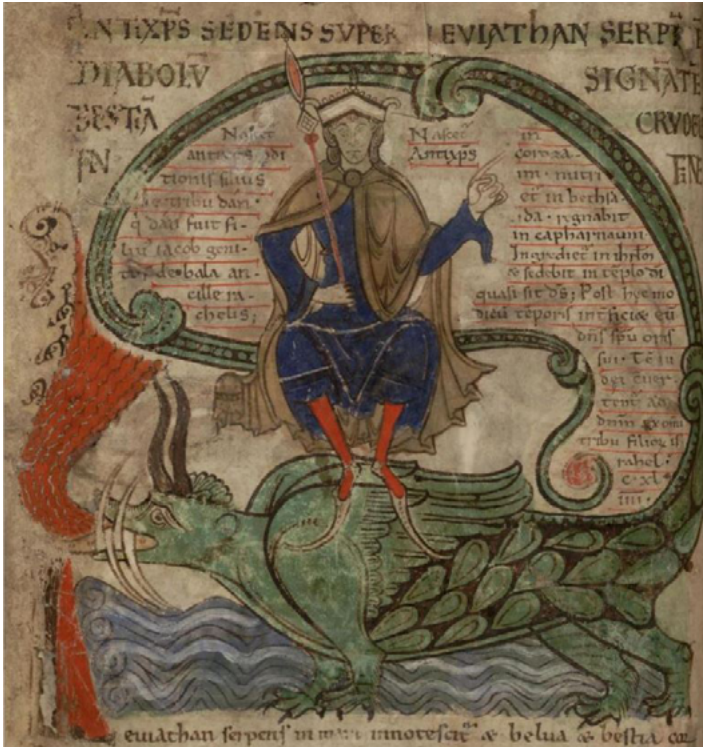 ANTIXP̄S SEDENS SUPER LEVIATHAN SERPĒTĒ
DIABOLV SIGNĀTE
BESTIĀ CRVDEL
IN FINE
Nascet
antixps ꝑdi
tionis filius
de tribu dan ·
q̄ dan fuit fi-
lius iacob geni-
de bala an-
cille ra-
chelis;
Nascet
Antixp̄s
in
coroza-
im · nutri
et in bethsa-
ida · regnabit
in capharnaum ·
Ingrediet̄ in ihrl̄m
& sedebit in tēplo dī
quasi sit ds̄; Post hec mo
dicū tēporis int̄ficiet eū
dn̄s sp̄u oris
sui ·
tribu filioꝝ is
rahel ·
c · xl ·
iiii ·
eviathan serpens in mari innotescit & belua & bestia